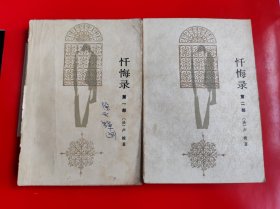 忏悔录
第一部
〔法〕卢梭 著
忏悔录
第二部
〔法〕卢梭 著